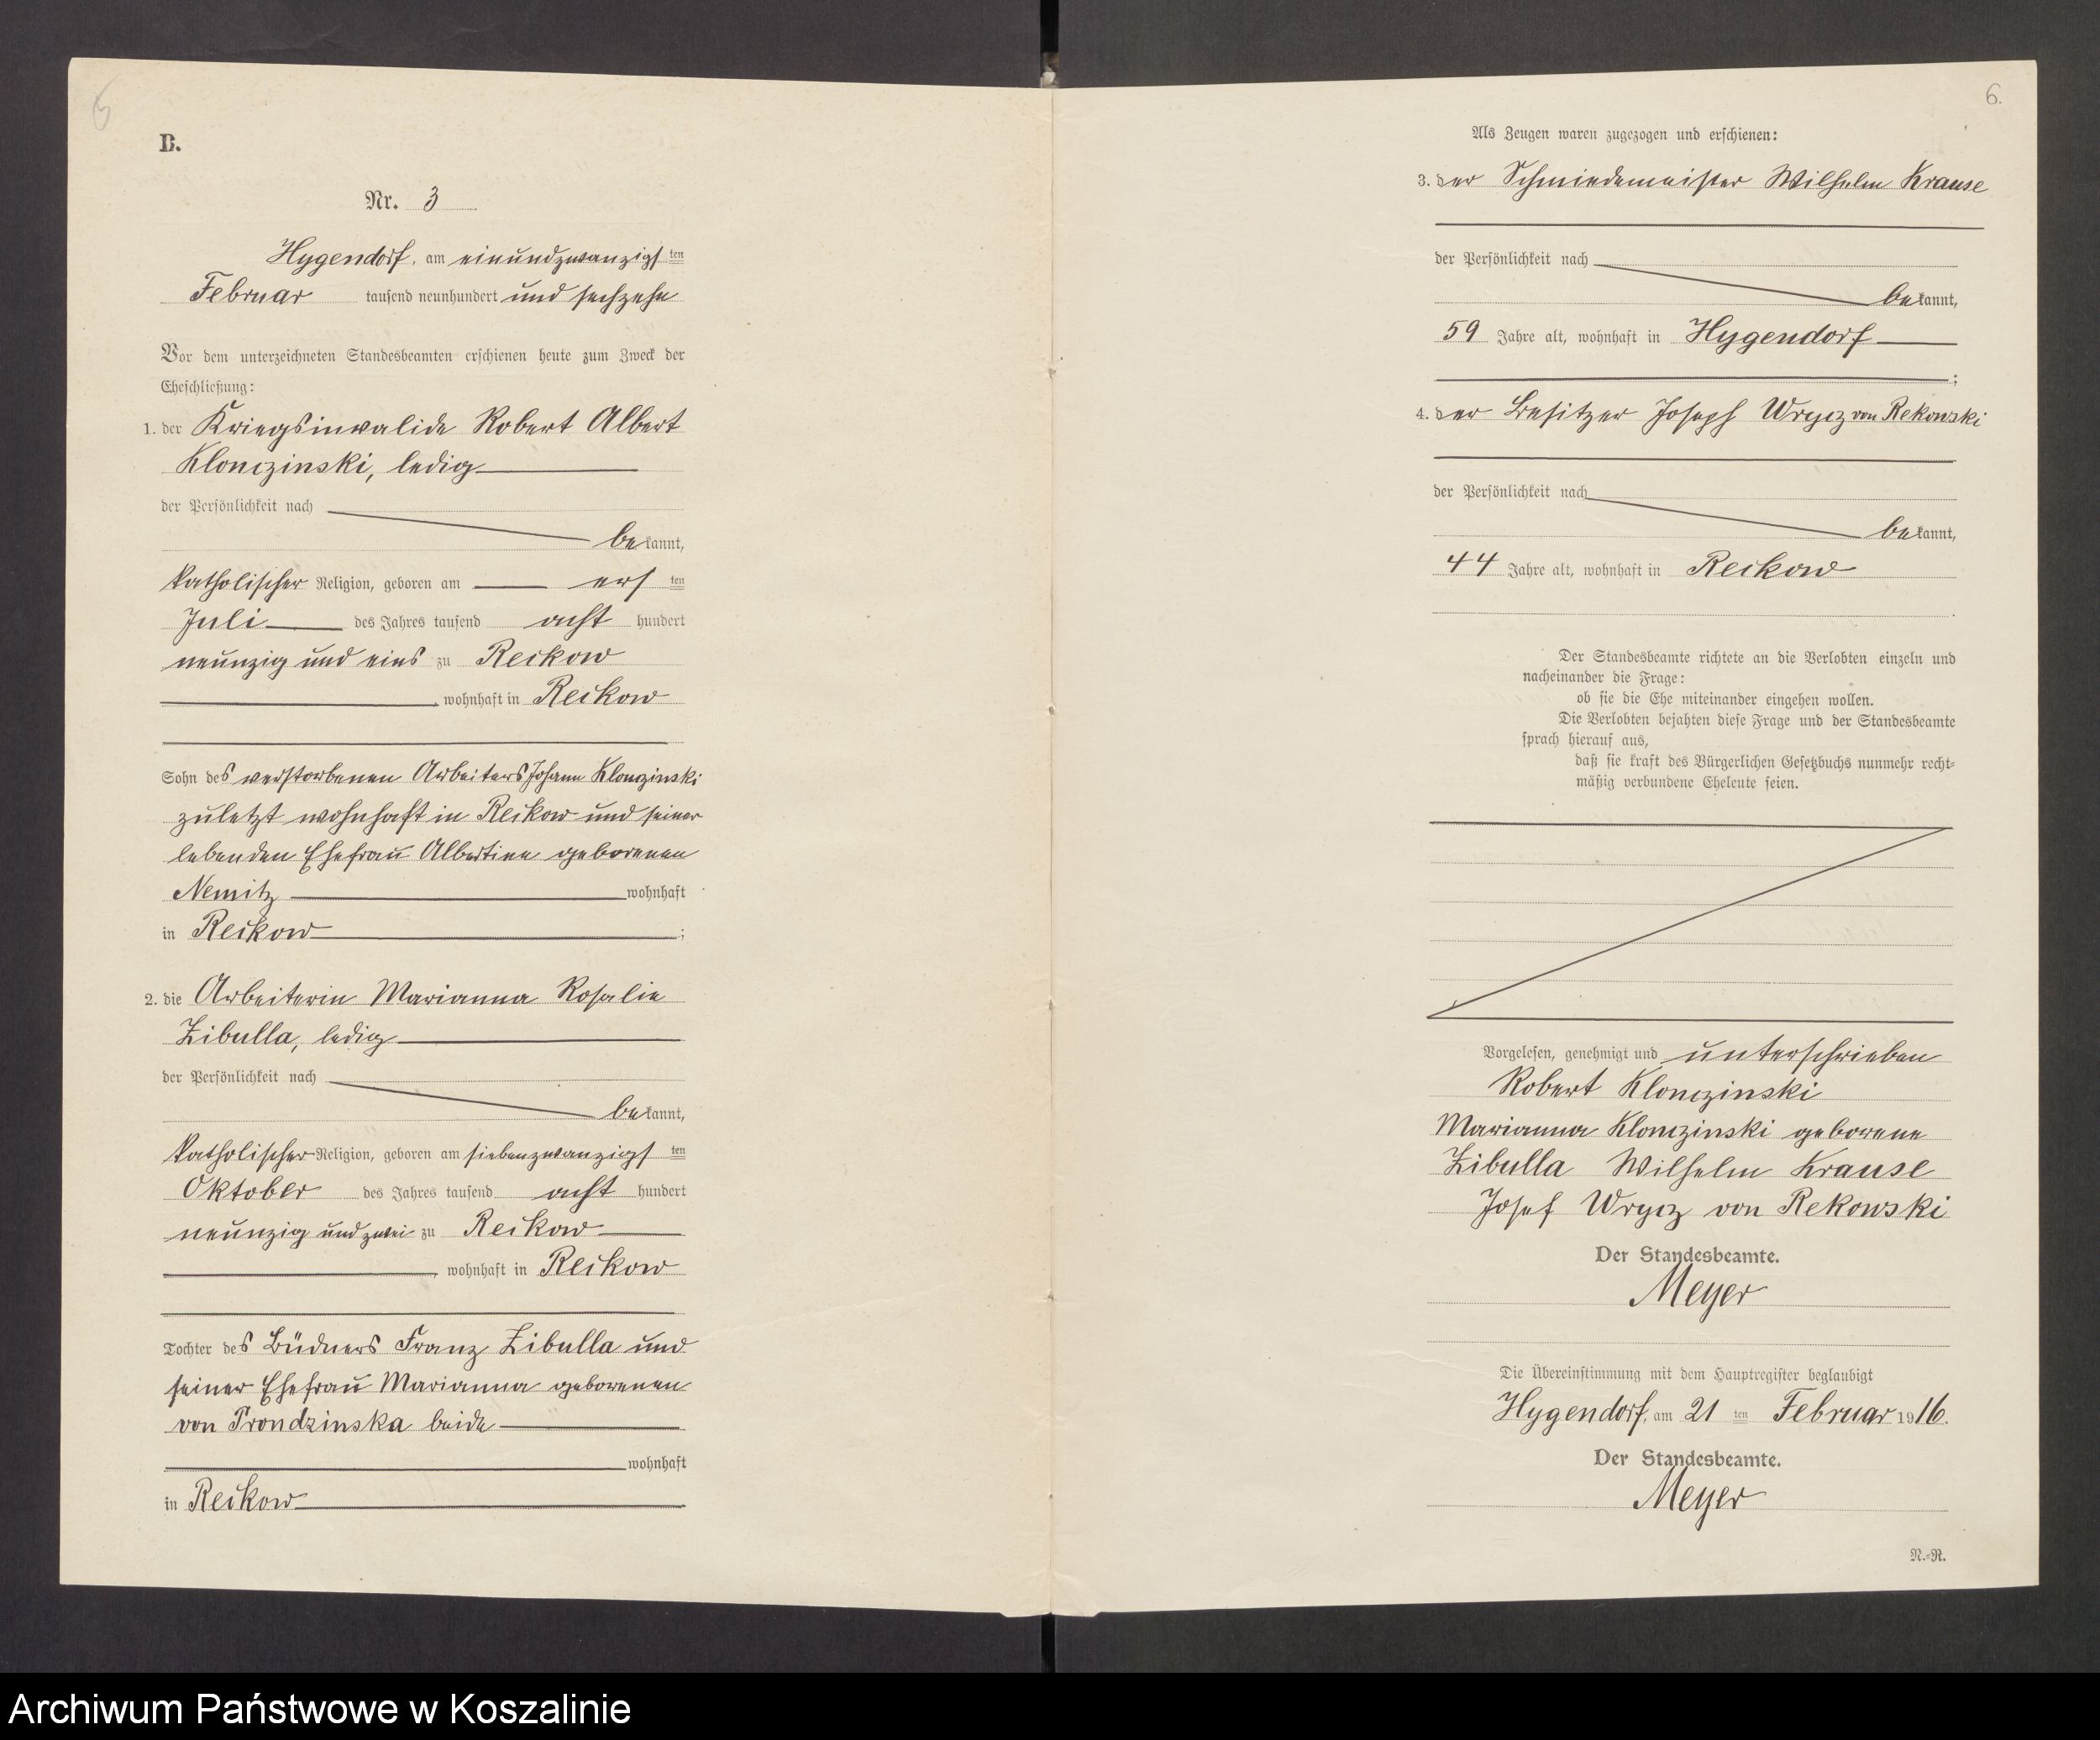 B.
Nr. 3
Hygendorf, am einundzwanzigsten
Februar tausend neunhundert und sechzehn
Vor dem unterzeichneten Standesbeamten erschienen heute zum Zweck der
Eheschließung:
1. der Kriegsinvalide Robert Albert
Klonczinski, ledig
der Persönlichkeit nach
bekannt,
katholischer Religion, geboren am ersten
Juli des Jahres tausend acht hundert
neunzig und eins zu Reckow
, wohnhaft in Reckow
Sohn des verstorbenen Arbeiters Johann Klonczinski
zuletzt wohnhaft in Reckow und seiner
lebenden Ehefrau Albertine geborenen
Nemitz wohnhaft
in Reckow ;
2. die Arbeiterin Marianna Rosalie
Zibulla, ledig
der Persönlichkeit nach
bekannt,
katholischer Religion, geboren am siebenzwanzigsten
Oktober des Jahres tausend acht hundert
neunzig und zwei zu Reckow
, wohnhaft in Reckow
Tochter des Büdners Franz Zibulla und
seiner Ehefrau Marianna geborenen
von Prondzinska beide
wohnhaft
in Reckow
6.
Als Zeugen waren zugezogen und erschienen:
3. der Schmiedemeister Wilhelm Krause
der Persönlichkeit nach
bekannt,
59 Jahre alt, wohnhaft in Hygendorf
;
4. der Besitzer Joseph Wrycz von Rekowski
der Persönlichkeit nach
bekannt,
44 Jahre alt, wohnhaft in Reckow
.
Der Standesbeamte richtete an die Verlobten einzeln und
nacheinander die Frage:
ob sie die Ehe miteinander eingehen wollen.
Die Verlobten bejahten diese Frage und der Standesbeamte
sprach hierauf aus,
daß sie kraft des Bürgerlichen Gesetzbuchs nunmehr recht-
mäßig verbundene Eheleute seien.
Vorgelesen, genehmigt und unterschrieben
Robert Klonczinski
Marianna Klonczinski geborene
Zibulla Wilhelm Krause
Josef Wrycz von Rekowski
Der Standesbeamte.
Meyer
Die Übereinstimmung mit dem Hauptregister beglaubigt
Hygendorf, am 21 ten Februar 1916.
Der Standesbeamte.
Meyer
N.-R.
Archiwum Państwowe w Koszalinie